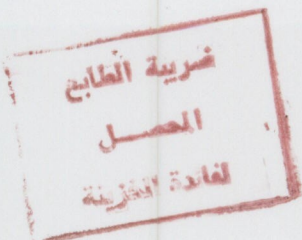 ضريبة الطابع
المحصل
لفائدة الخزينة